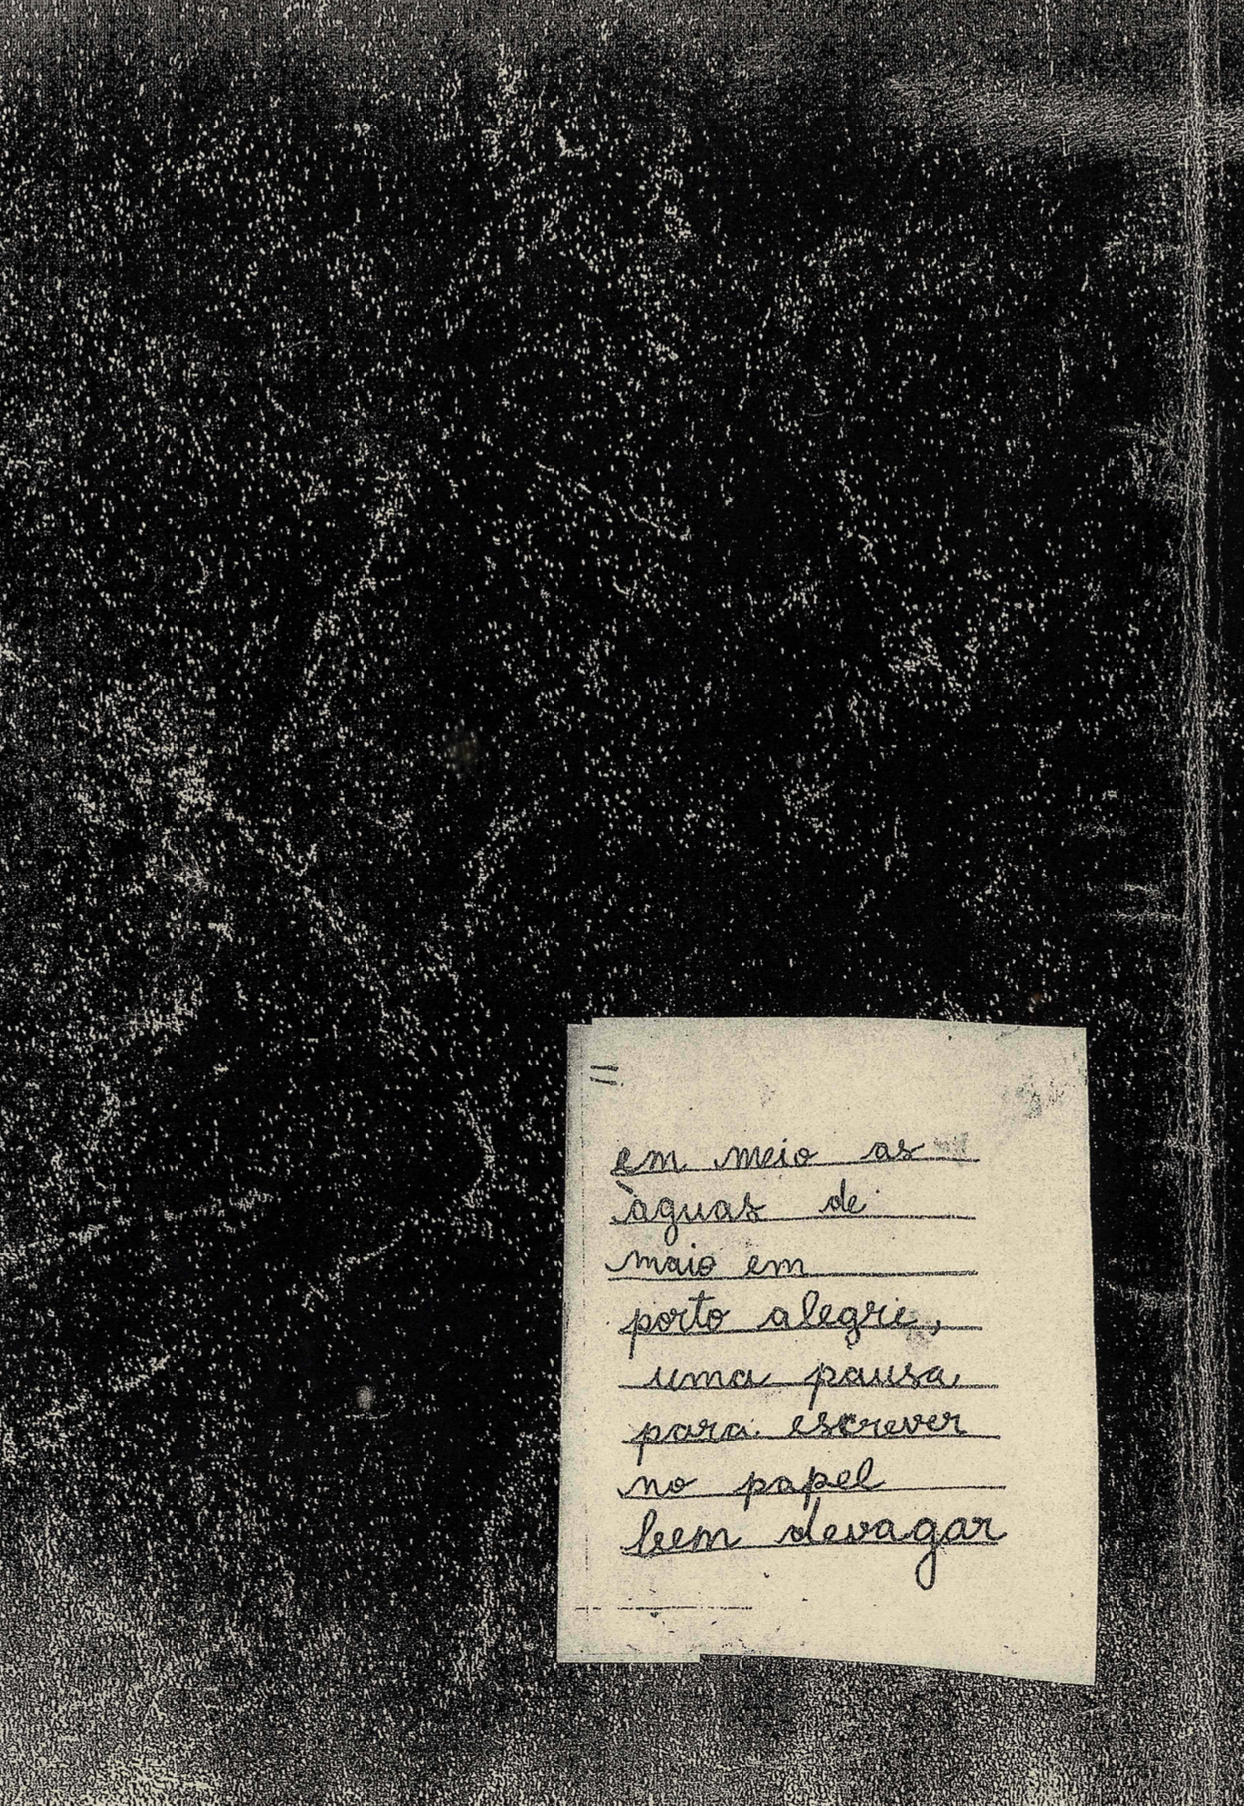 em meio as
àguas de
maio em
porto alegre,
uma pausa
para escrever
no papel
bem devagar